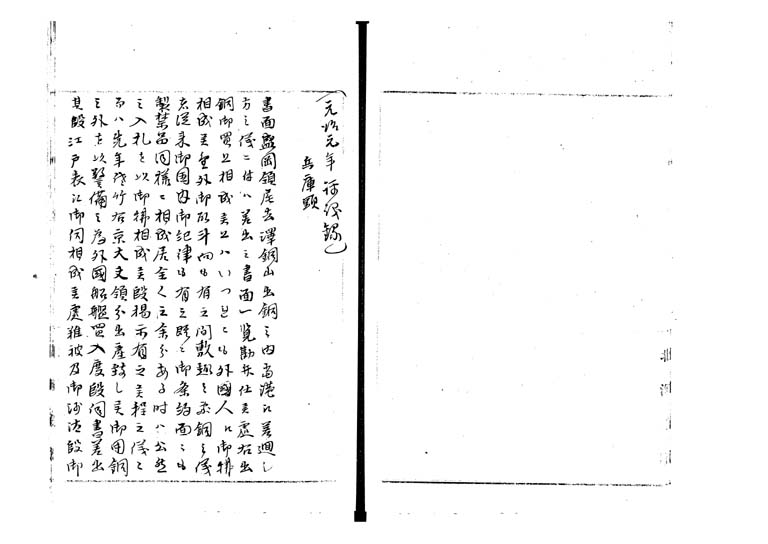 (元治元年 評議録)
兵庫頭
書面盛岡領尾去澤銅山出銅之内當港江差廻し
方之儀ニ付ハ差出之書面一覧勘弁仕候處右出
銅御買上相成候上ハいつれとも外国人江御拂
相成候筈外御取斗向も有之間敷趣を以銅之儀
者従来御国内御紀律も有之既ニ御条約面ニも
製禁品同様ニ相成居全く之余分ある時ハ公然
之入札を以御拂相成候段掲示有之候程之儀ニ
而ハ先年佐竹右京大夫領分出産致し候御用銅
之外を以警備之為外國船艦買入度段伺書差出
其段江戸表江御伺相成候處難被及御沙汰段御